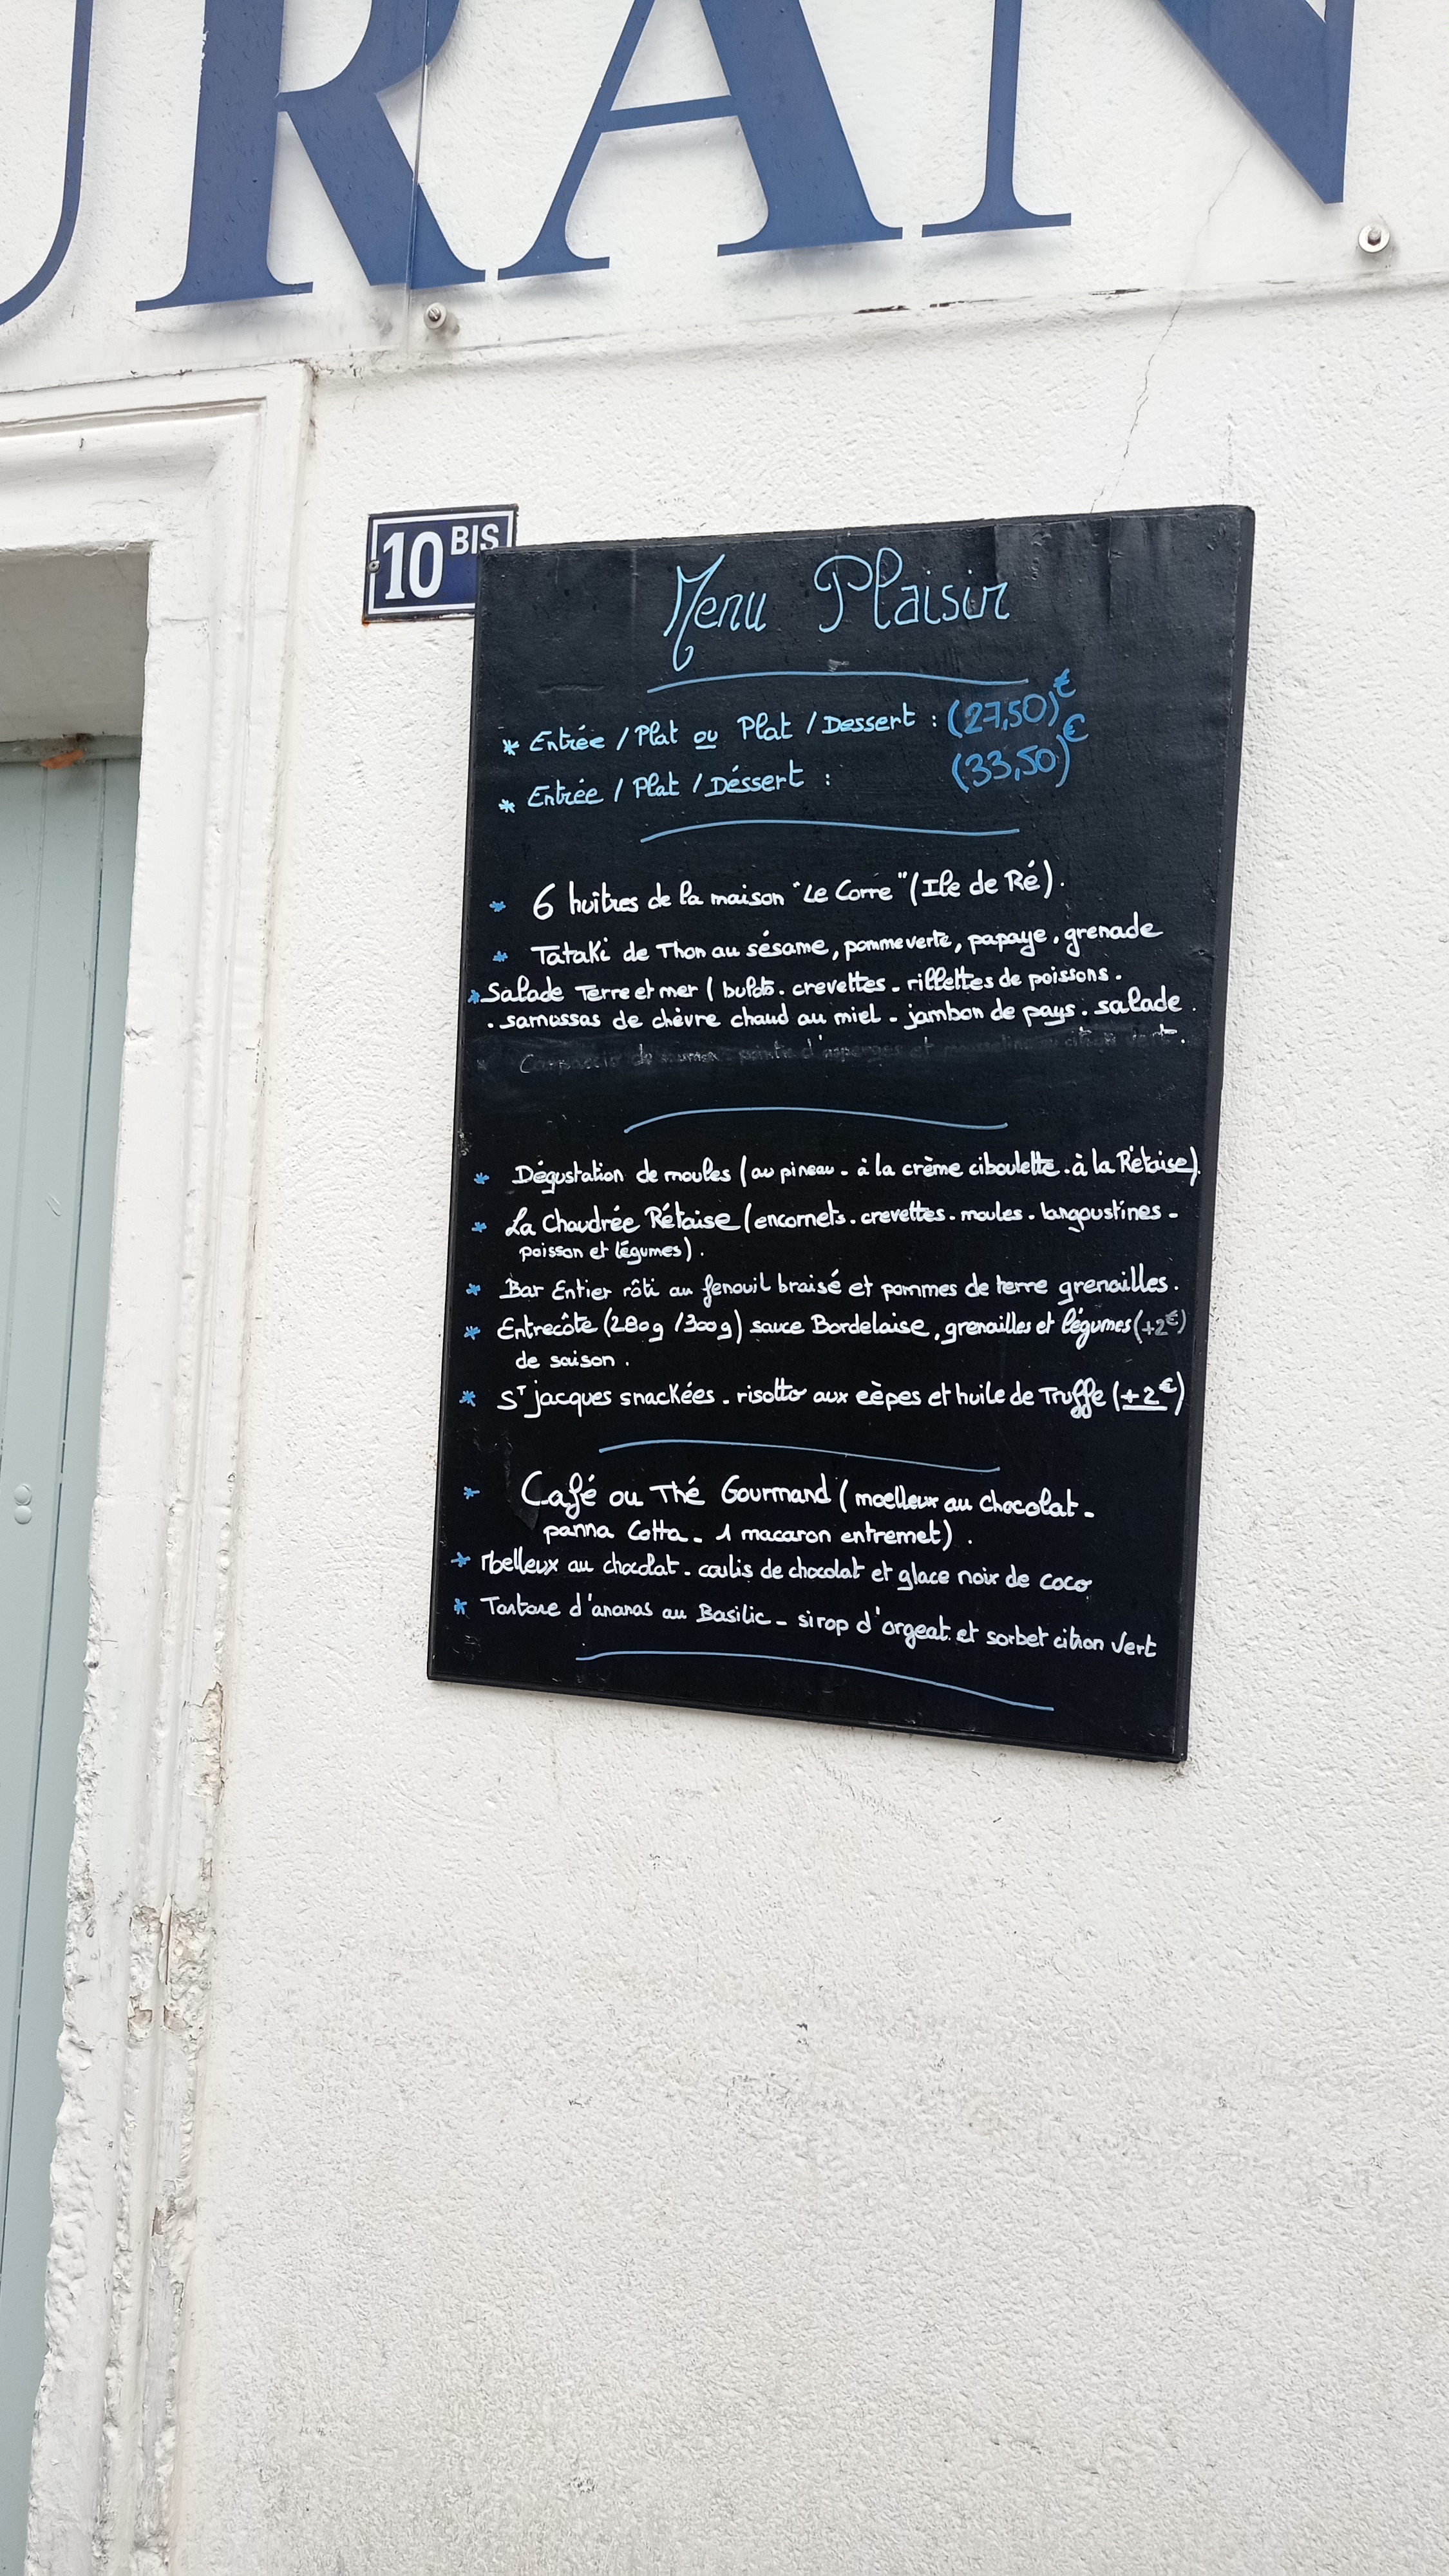 URAN
10 BIS
Menu Plaisir
* Entrée / Plat ou Plat / Dessert : (27,50)€
* Entrée / Plat / Déssert : (33,50)€
* 6 huîtres de la maison "Le Corre" (Ile de Ré).
* Tataki de Thon au sésame, pomme verte, papaye, grenade
* Salade Terre et mer ( bulots. crevettes - rillettes de poissons.
. samossas de chèvre chaud au miel - jambon de pays. salade.
* Dégustation de moules (au pineau - à la crème ciboulette. à la Rétaise).
* La Chaudrée Rétaise (encornets. crevettes. moules. langoustines -
poisson et légumes).
* Bar Entier rôti au fenouil braisé et pommes de terre grenailles.
* Entrecôte (280g /300g) sauce Bordelaise, grenailles et légumes (+2€)
de saison.
* St jacques snackées. risotto aux cèpes et huile de Truffe (+2€)
* Café ou Thé Gourmand ( moelleux au chocolat -
panna Cotta - 1 macaron entremet).
* Moelleux au chocolat. coulis de chocolat et glace noix de coco
* Tartare d'ananas au Basilic - sirop d'orgeat et sorbet citron Vert